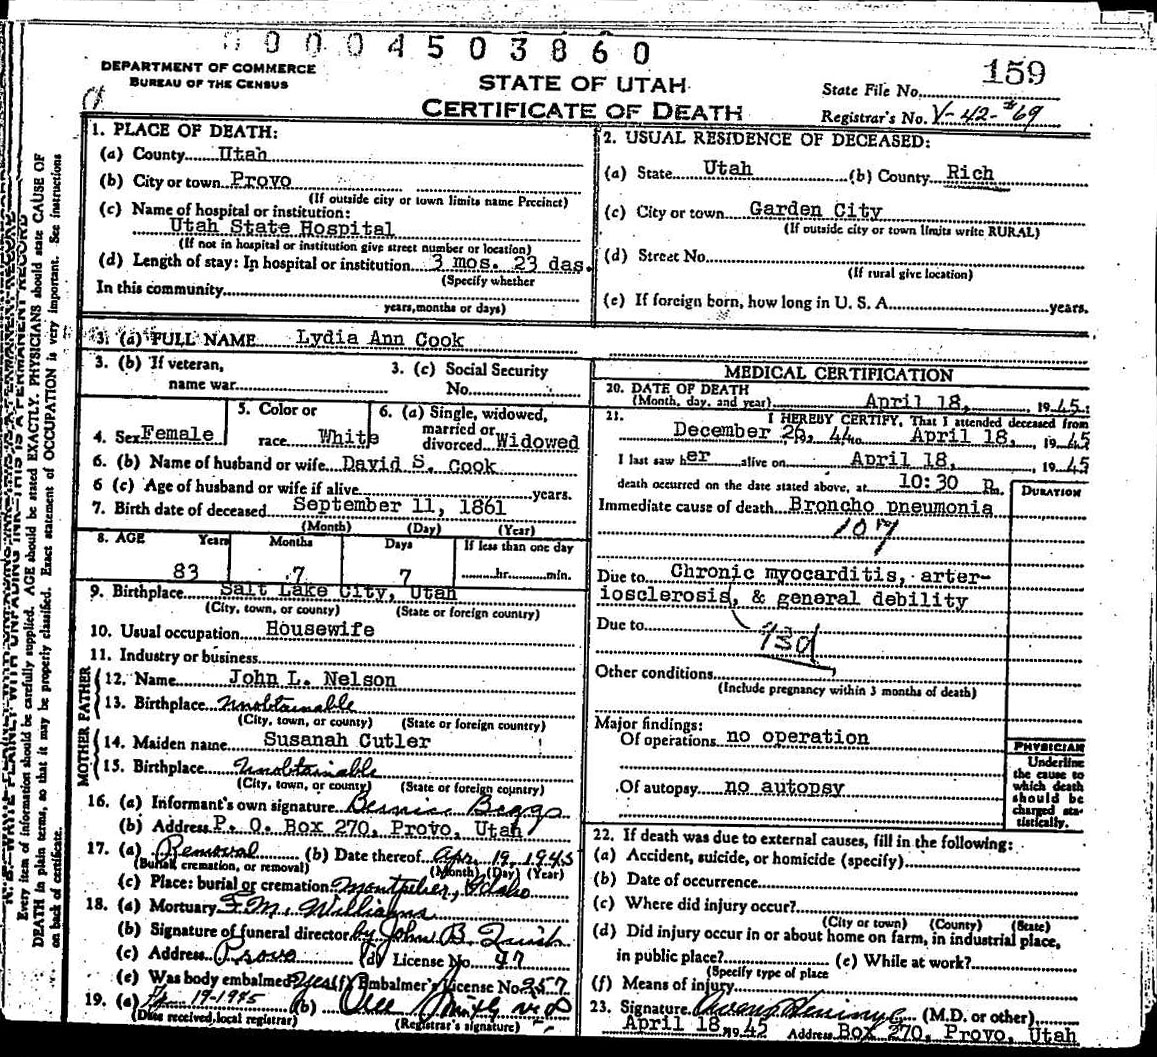 0004503860
DEPARTMENT OF COMMERCE
BUREAU OF THE CENSUS
STATE OF UTAH
CERTIFICATE OF DEATH
State File No. 159
Registrar's No. V-42-#69
1. PLACE OF DEATH:
(a) County Utah
(b) City or town Provo
(If outside city or town limits name Precinct)
(c) Name of hospital or institution:
Utah State Hospital
(If not in hospital or institution give street number or location)
(d) Length of stay: In hospital or institution 3 mos. 23 das.
(Specify whether
In this community
years, months or days)
2. USUAL RESIDENCE OF DECEASED:
(a) State Utah (b) County Rich
(c) City or town Garden City
(If outside city or town limits write RURAL)
(d) Street No.
(If rural give location)
(e) If foreign born, how long in U. S. A. years.
3. (a) FULL NAME Lydia Ann Cook
3. (b) If veteran, name war
3. (c) Social Security No.
4. Sex Female
5. Color or race White
6. (a) Single, widowed, married or divorced Widowed
6. (b) Name of husband or wife David S. Cook
6 (c) Age of husband or wife if alive years.
7. Birth date of deceased September 11, 1861
(Month) (Day) (Year)
8. AGE Years Months Days If less than one day
83 7 7 hr. min.
9. Birthplace Salt Lake City, Utah
(City, town, or county) (State or foreign country)
10. Usual occupation Housewife
11. Industry or business
FATHER
12. Name John L. Nelson
13. Birthplace Unobtainable
(City, town, or county) (State or foreign country)
MOTHER
14. Maiden name Susanah Cutler
15. Birthplace Unobtainable
(City, town, or county) (State or foreign country)
16. (a) Informant's own signature Bernice Beggs
(b) Address P. O. Box 270, Provo, Utah
17. (a) Removal (b) Date thereof Apr. 19, 1945
(Burial, cremation, or removal) (Month) (Day) (Year)
(c) Place: burial or cremation Montpelier, Idaho
18. (a) Mortuary F. M. Williams
(b) Signature of funeral director by John B.
(c) Address Provo (d) License No. 47
(e) Was body embalmed? Yes (f) Embalmer's License No. 257
19. (a) 19-1945 (b) Smith M D
(Date received local registrar) (Registrar's signature)
MEDICAL CERTIFICATION
20. DATE OF DEATH
(Month, day, and year) April 18, 1945
21. I HEREBY CERTIFY, That I attended deceased from
December 26, 44 to April 18, 1945
I last saw her alive on April 18, 1945
death occurred on the date stated above, at 10:30 p m.
DURATION
Immediate cause of death Broncho pneumonia
107
Due to Chronic myocarditis, arter-
iosclerosis, & general debility
Due to 93d
Other conditions
(Include pregnancy within 3 months of death)
Major findings:
Of operations no operation
Of autopsy no autopsy
PHYSICIAN
Underline
the cause to
which death
should be
charged sta-
tistically.
22. If death was due to external causes, fill in the following:
(a) Accident, suicide, or homicide (specify)
(b) Date of occurrence
(c) Where did injury occur?
(City or town) (County) (State)
(d) Did injury occur in or about home on farm, in industrial place,
in public place? (e) While at work?
(Specify type of place
(f) Means of injury
23. Signature (M.D. or other)
April 18, 1945 Address Box 270, Provo, Utah
N. B.—WRITE PLAINLY WITH UNFADING INK—THIS IS A PERMANENT RECORD
Every item of information should be carefully supplied. AGE should be stated EXACTLY. PHYSICIANS should state CAUSE OF
DEATH in plain terms, so that it may be properly classified. Exact statement of OCCUPATION is very important. See instructions
on back of certificate.